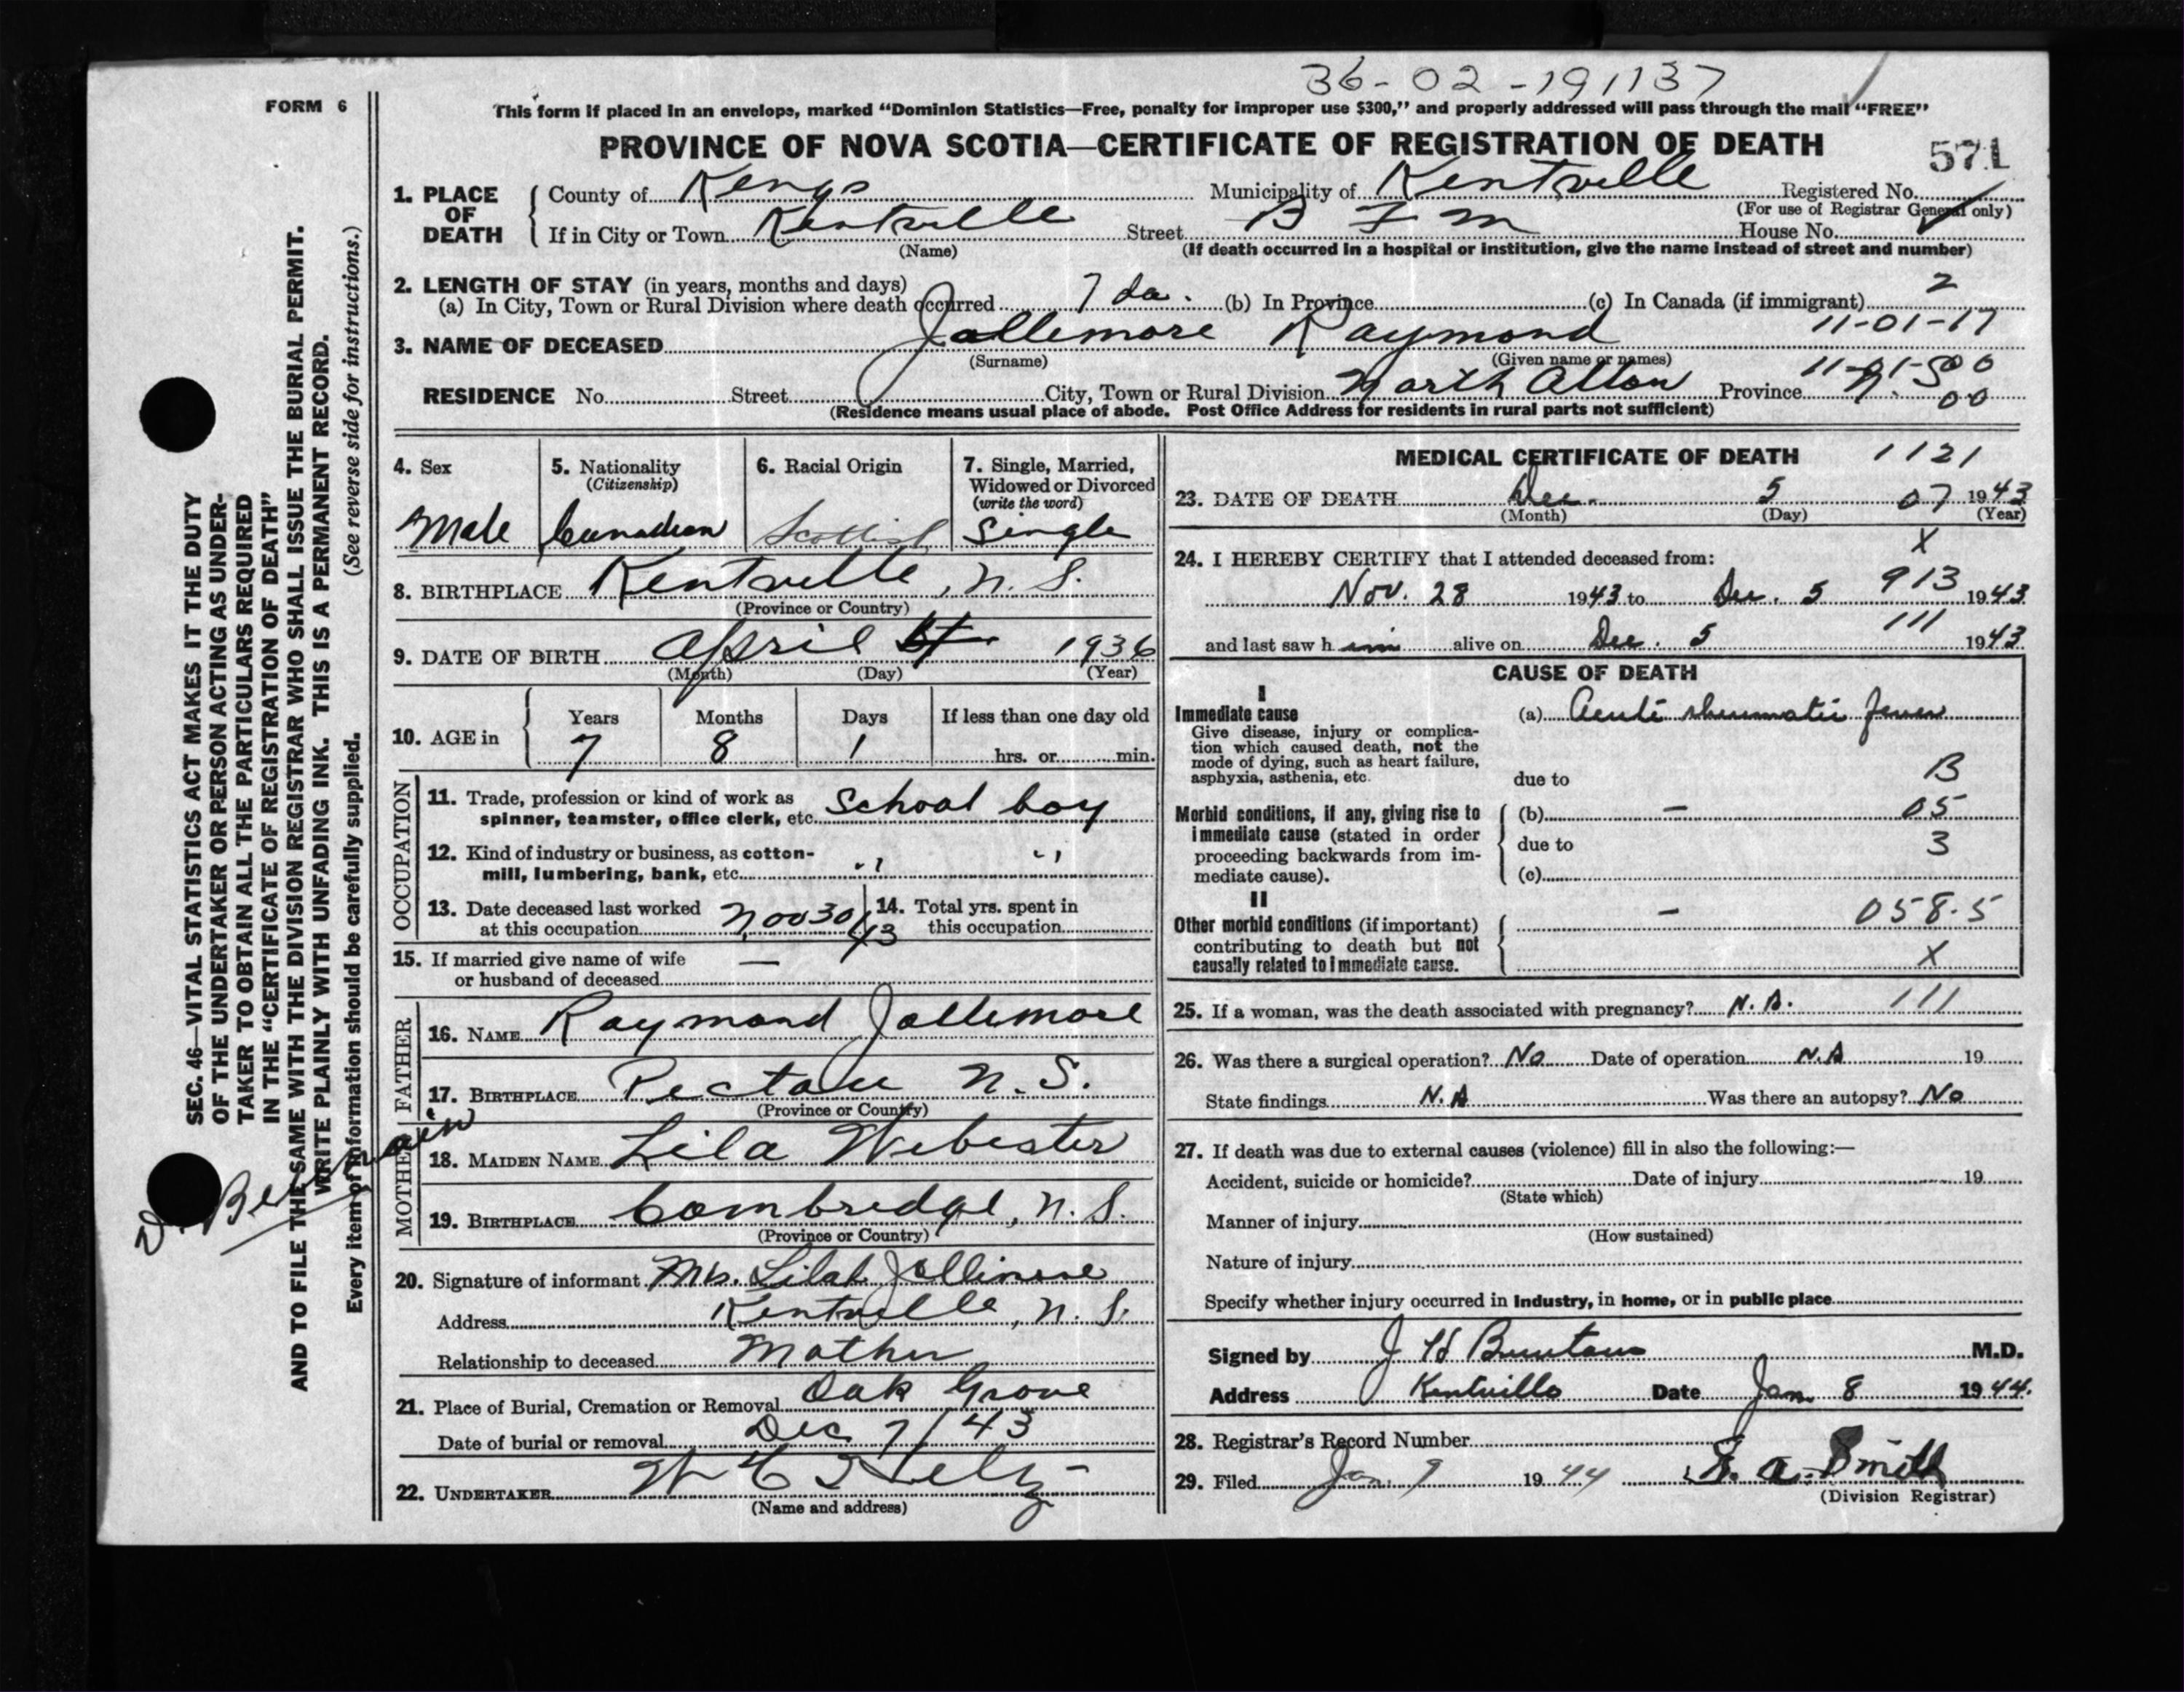 36-02-191137
FORM 6
This form if placed in an envelope, marked “Dominion Statistics—Free, penalty for improper use $300,” and properly addressed will pass through the mail “FREE”
PROVINCE OF NOVA SCOTIA—CERTIFICATE OF REGISTRATION OF DEATH
571
1. PLACE OF DEATH { County of Kings Municipality of Kentville Registered No.
(For use of Registrar General only)
If in City or Town Kentville Street B F M House No.
(Name) (If death occurred in a hospital or institution, give the name instead of street and number)
2. LENGTH OF STAY (in years, months and days)
(a) In City, Town or Rural Division where death occurred 7 da. (b) In Province (c) In Canada (if immigrant) 2
3. NAME OF DECEASED Jollemore Raymond 11-01-17
(Surname) (Given name or names)
11-01-500
RESIDENCE No. Street City, Town or Rural Division North Alton Province N. 00
(Residence means usual place of abode. Post Office Address for residents in rural parts not sufficient)
4. Sex
Male
5. Nationality
(Citizenship)
Canadian
6. Racial Origin
Scottish
7. Single, Married,
Widowed or Divorced
(write the word)
Single
8. BIRTHPLACE Kentville, N. S.
(Province or Country)
9. DATE OF BIRTH April 1936
(Month) (Day) (Year)
10. AGE in { Years Months Days If less than one day old
7 8 1 hrs. or min.
OCCUPATION
11. Trade, profession or kind of work as
spinner, teamster, office clerk, etc. School boy
12. Kind of industry or business, as cotton-
mill, lumbering, bank, etc. " "
13. Date deceased last worked
at this occupation Nov 30/43
14. Total yrs. spent in
this occupation
15. If married give name of wife
or husband of deceased —
FATHER
16. NAME Raymond Jollemore
17. BIRTHPLACE Pictou N. S.
(Province or Country)
MOTHER
18. MAIDEN NAME Lila Webester
19. BIRTHPLACE Cambridge, N. S.
(Province or Country)
20. Signature of informant Mrs. Lilah Jollimore
Address Kentville, N. S.
Relationship to deceased Mother
21. Place of Burial, Cremation or Removal Oak Grove
Date of burial or removal Dec 7/43
22. UNDERTAKER
(Name and address)
MEDICAL CERTIFICATE OF DEATH 1121
23. DATE OF DEATH Dec. 5 07 1943
(Month) (Day) (Year)
X
24. I HEREBY CERTIFY that I attended deceased from:
913
Nov. 28 1943 to Dec. 5 1943
111
and last saw h im alive on Dec. 5 1943
CAUSE OF DEATH
I
Immediate cause (a) Acute rheumatic fever
Give disease, injury or complica-
tion which caused death, not the
mode of dying, such as heart failure,
asphyxia, asthenia, etc. due to B
Morbid conditions, if any, giving rise to (b) — 05
immediate cause (stated in order due to 3
proceeding backwards from im-
mediate cause). (c)
II
Other morbid conditions (if important) — 058.5
contributing to death but not
causally related to immediate cause. X
25. If a woman, was the death associated with pregnancy? N. A. 111
26. Was there a surgical operation? No Date of operation N.A 19
State findings N.A Was there an autopsy? No
27. If death was due to external causes (violence) fill in also the following:—
Accident, suicide or homicide? Date of injury 19
(State which)
Manner of injury
(How sustained)
Nature of injury
Specify whether injury occurred in industry, in home, or in public place
Signed by M.D.
Address Kentville Date Jan 8 1944.
28. Registrar's Record Number
29. Filed Jan 9 1944 Smith
(Division Registrar)
SEC. 46—VITAL STATISTICS ACT MAKES IT THE DUTY
OF THE UNDERTAKER OR PERSON ACTING AS UNDER-
TAKER TO OBTAIN ALL THE PARTICULARS REQUIRED
IN THE “CERTIFICATE OF REGISTRATION OF DEATH”
AND TO FILE THE SAME WITH THE DIVISION REGISTRAR WHO SHALL ISSUE THE BURIAL PERMIT.
WRITE PLAINLY WITH UNFADING INK. THIS IS A PERMANENT RECORD.
Every item of information should be carefully supplied. (See reverse side for instructions.)